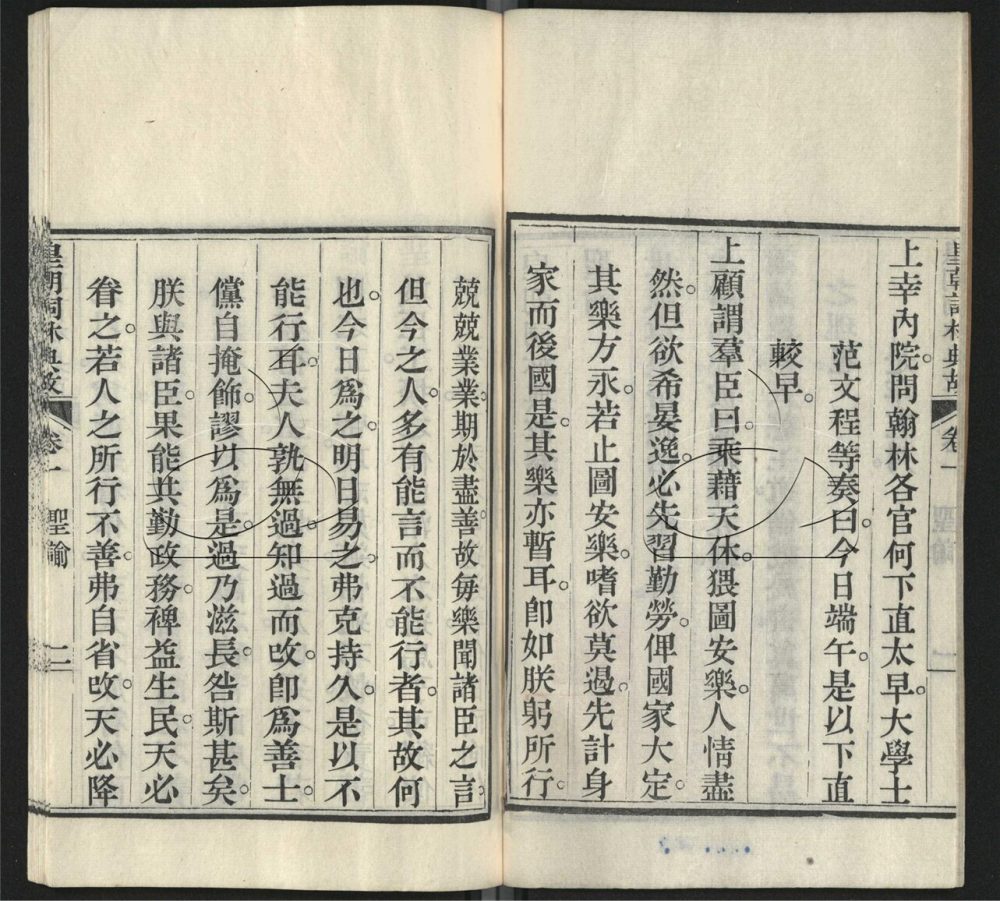 皇朝詞林典故 卷一 聖諭 一
上幸內院。問翰林各官何下直太早。大學士
范文程等奏曰。今日端午。是以下直
較早。
上顧謂羣臣曰。乘藉天休。猥圖安樂。人情盡
然。但欲希晏逸。必先習勤勞。俾國家大定。
其樂方永。若止圖安樂。嗜欲莫遏。先計身
家而後國。是其樂亦暫耳。卽如朕躬所行。
兢兢業業。期於盡善。故每樂聞諸臣之言。
但今之人。多有能言而不能行者。其故何
也。今日爲之。明日易之。弗克持久。是以不
能行耳。夫人孰無過。知過而攺。卽爲善士。
儻自掩飾。謬以爲是。過乃滋長。咎斯甚矣。
朕與諸臣。果能共勤政務。裨益生民。天必
眷之。若人之所行不善。弗自省攺。天必降
皇朝詞林典故 卷一 聖諭 二